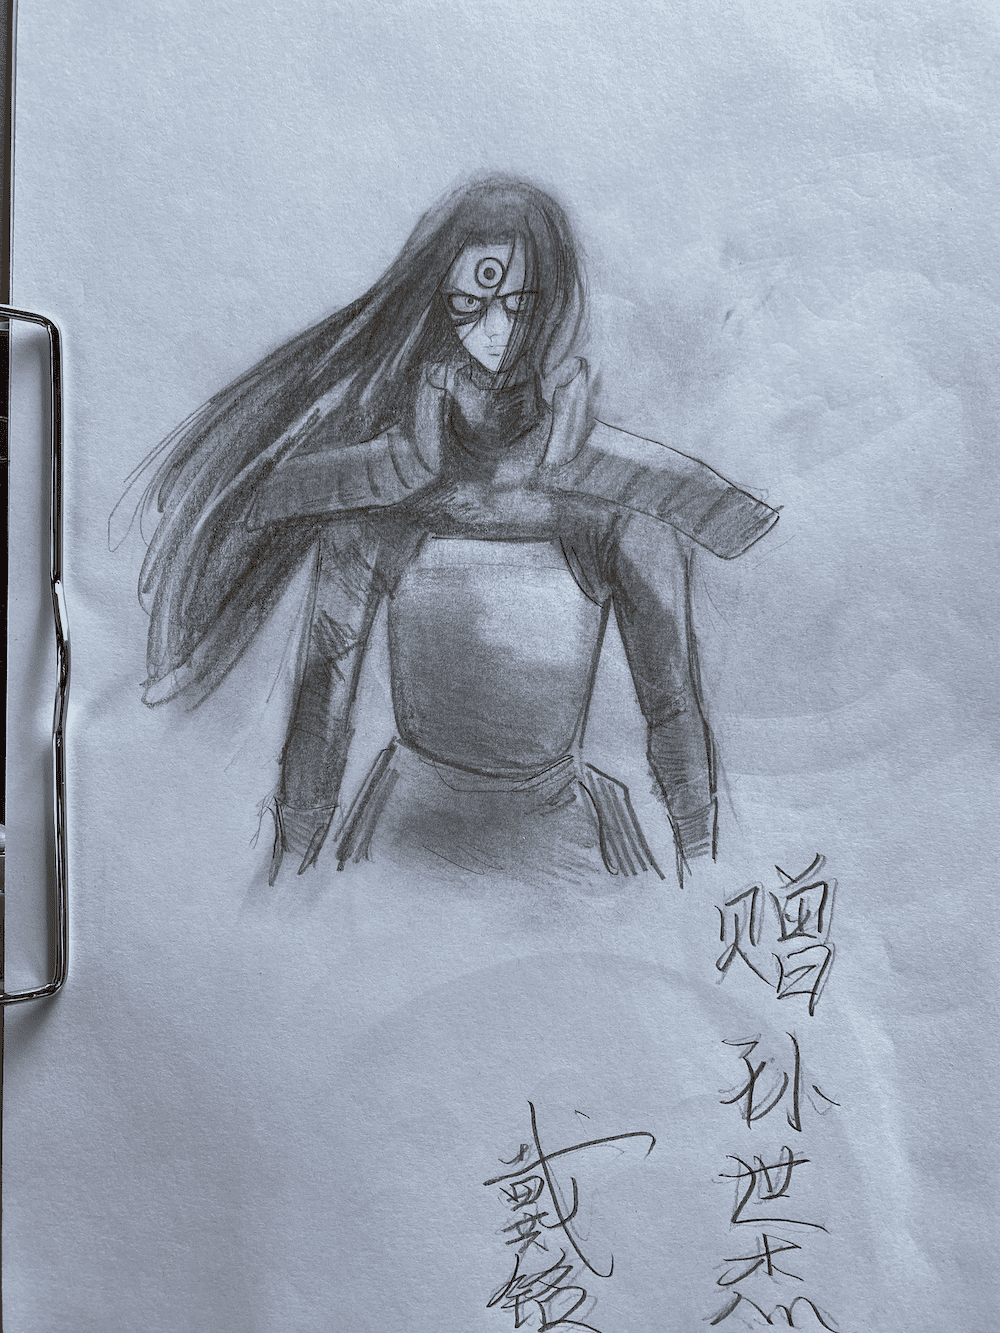 赠孙世杰
戴铭